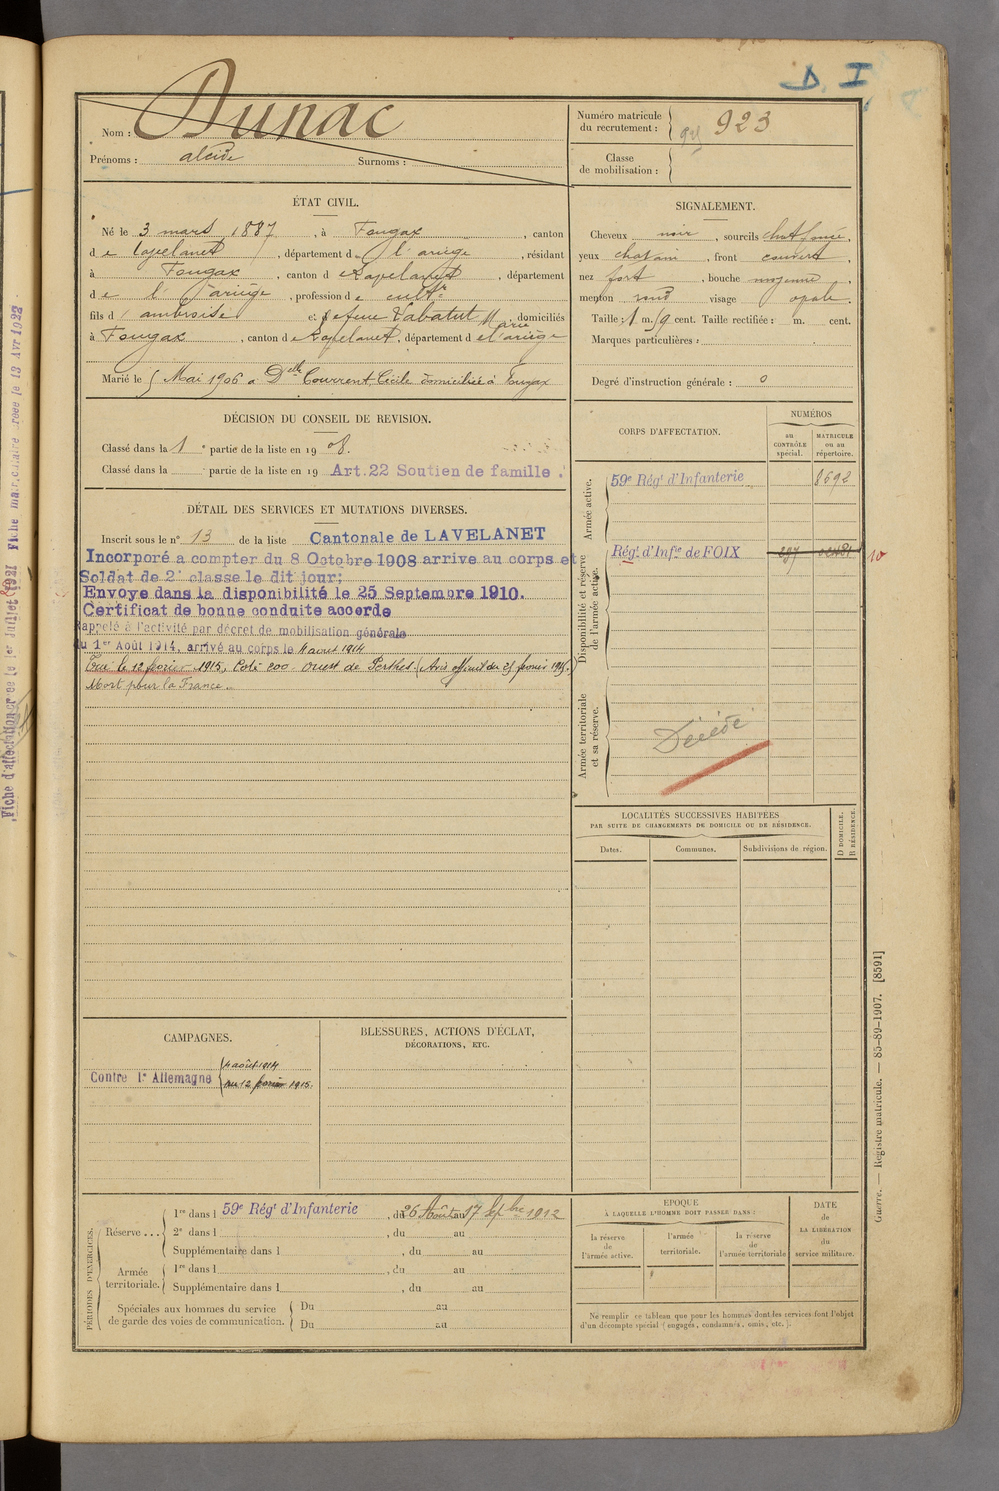 D. I
Nom : Dunac
Prénoms : alcide Surnoms :
Numéro matricule
du recrutement : 923
Classe
de mobilisation :
ÉTAT CIVIL.
Né le 3 mars 1887, à Fougax, canton
de Lavelanet, département de l'ariège, résidant
à Fougax, canton de Lavelanet, département
de l'ariège, profession de cultr
fils d'ambroise et de feue Labatut Marie, domiciliés
à Fougax, canton de Lavelanet, département de l'ariège
Marié le 5 Mai 1906 a Delle Courrent Cécile domiciliée à Fougax
SIGNALEMENT.
Cheveux noir, sourcils chat foncé,
yeux chatain, front couvert,
nez fort, bouche moyenne
menton rond visage ovale.
Taille : 1 m. 59 cent. Taille rectifiée : m. cent.
Marques particulières :
Degré d'instruction générale : 0
DÉCISION DU CONSEIL DE REVISION.
Classé dans la 1e partie de la liste en 1908.
Classé dans la partie de la liste en 19 Art.22 Soutien de famille.
DÉTAIL DES SERVICES ET MUTATIONS DIVERSES.
Inscrit sous le n° 13 de la liste Cantonale de LAVELANET
Incorporé a compter du 8 Octobre 1908 arrive au corps et
Soldat de 2e classe le dit jour;
Envoye dans la disponibilité le 25 Septembre 1910.
Certificat de bonne conduite accorde
Rappelé à l'activité par décret de mobilisation générale
du 1er Août 1914, arrivé au corps le 4 aout 1914
Tué le 12 février 1915, Cote 200 ouest de Perthes (Avis officiel du 25 février 1915.)
Mort pour la France.
CORPS D'AFFECTATION.
NUMÉROS
au
CONTRÔLE
spécial.
MATRICULE
ou au
répertoire.
Armée active.
59e Régt d'Infanterie 8692
Disponibilité et réserve
de l'armée active.
Régt d'Infie de FOIX 297
10
Armée territoriale
et sa réserve.
Décédé
LOCALITÉS SUCCESSIVES HABITÉES
PAR SUITE DE CHANGEMENTS DE DOMICILE OU DE RÉSIDENCE.
Dates. Communes. Subdivisions de région.
D DOMICILE.
R RÉSIDENCE.
CAMPAGNES.
Contre l'Allemagne
4 août 1914
au 12 février 1915.
BLESSURES, ACTIONS D'ÉCLAT,
DÉCORATIONS, ETC.
PÉRIODES D'EXERCICES.
Réserve...
1re dans l 59e Régt d'Infanterie, du 26 Août au 17 Septbre 1912
2e dans l , du au
Supplémentaire dans l , du au
Armée
territoriale.
1re dans l , du au
Supplémentaire dans l , du au
Spéciales aux hommes du service
de garde des voies de communication.
Du au
Du au
EPOQUE
À LAQUELLE L'HOMME DOIT PASSER DANS :
la réserve
de
l'armée active.
l'armée
territoriale.
la réserve
de
l'armée territoriale
DATE
de
LA LIBÉRATION
du
service militaire.
Ne remplir ce tableau que pour les hommes dont les services font l'objet
d'un décompte spécial (engagés, condamnés, omis, etc.).
Guerre. — Registre matricule. — 85-89-1907. [8591]
Fiche d'affectation créée le 1er Juillet 1921 Fiche matriculaire créée le 13 Avr 1922